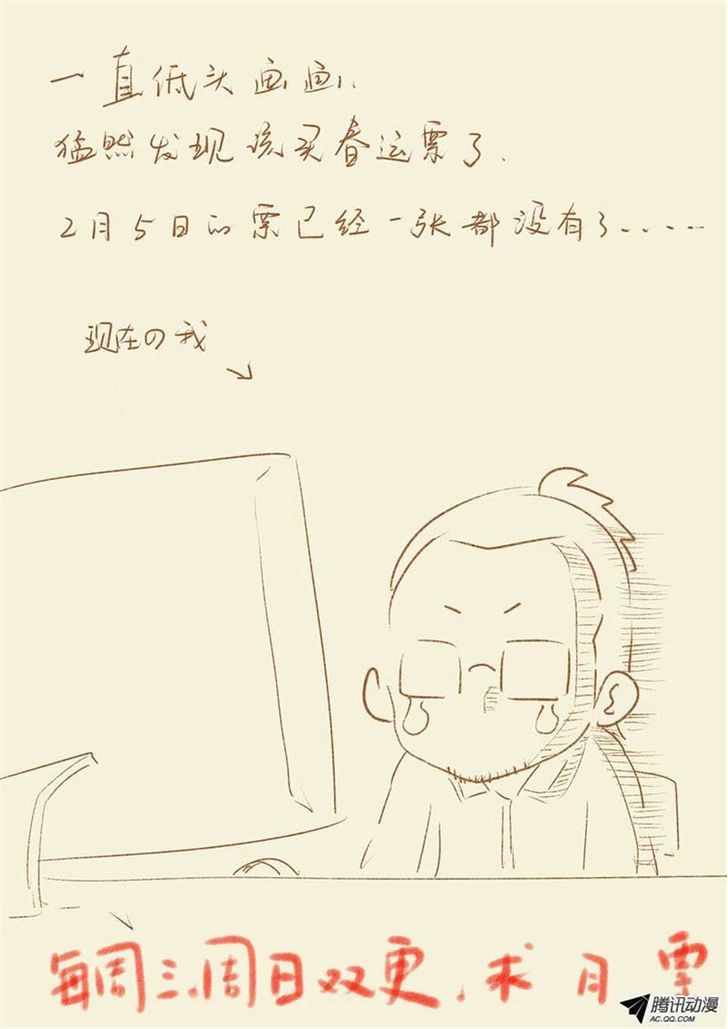 一直低头画画、
猛然发现该买春运票了.
2月5日的票已经一张都没有了.....
现在の我
每周三、周日双更、求月票
腾讯动漫
AC.QQ.COM